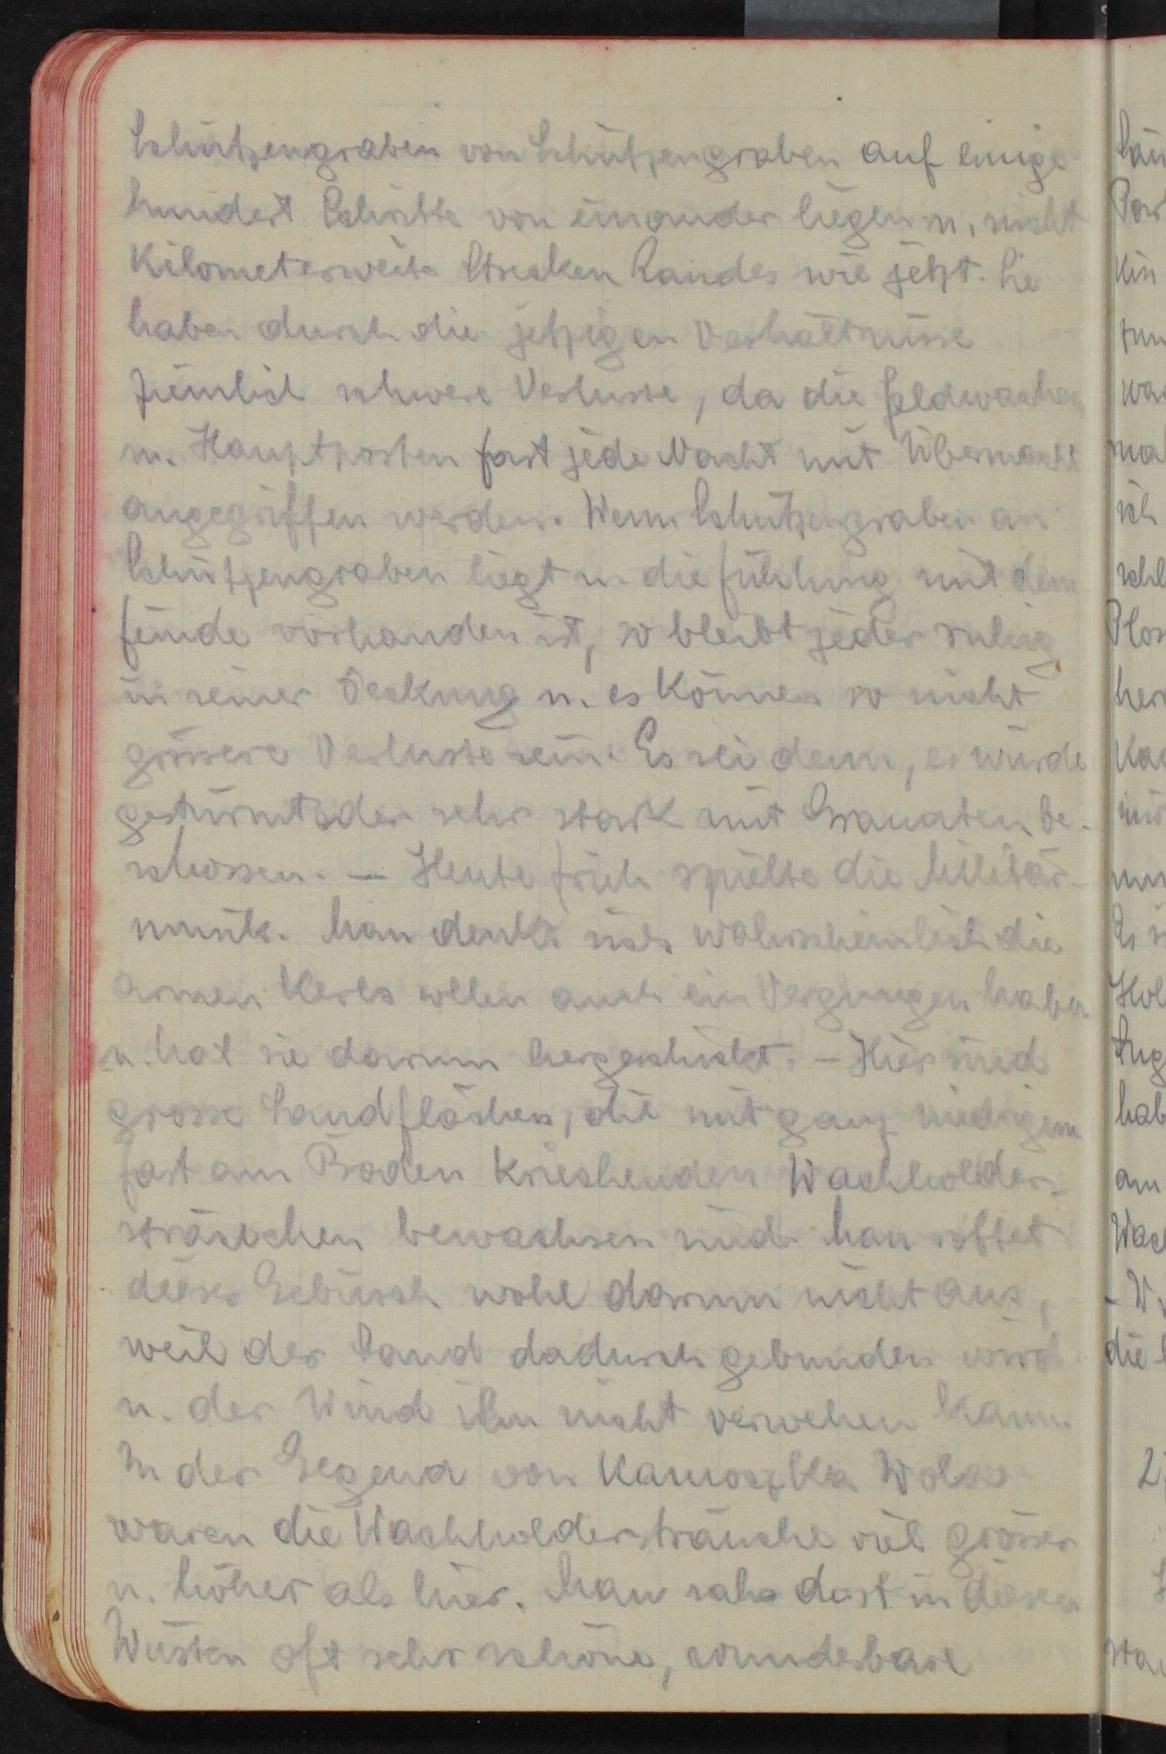 Schützengraben von Schützengraben auf einige
hundert Schritte von einander liegen u. nicht
Kilometerweite Strecken Landes wie jetzt. Sie
haben durch die jetzigen Verhältnisse
ziemlich schwere Verluste, da die Feldwachen
u. Hauptposten fast jede Nacht mit Übermacht
angegriffen werden. Wenn Schützengraben an
Schützengraben liegt u. die Fühlung mit dem
Feinde vorhanden ist, so bleibt jeder ruhig
in seiner Deckung u. es können so nicht
grössere Verluste sein. Es sei denn, es würde
gestürmt oder sehr stark mit Granaten be-
schossen. — Heute früh spielte die Militär-
musik. Man denkt sich wahrscheinlich die
armen Kerls wollen auch ein Vergnügen haben
u. hat sie darum hergeschickt. — Hier sind
grosse Sandflächen, die mit ganz niedrigem
fast am Boden kriechenden Wachholder-
sträuchen bewachsen sind. Man rottet
dieses Gebüsch wohl darum nicht aus,
weil der Sand dadurch gebunden wird
u. der Wind ihn nicht verwehen kann.
In der Gegend von Wola
waren die Wachholdersträuche viel grösser
u. höher als hier. Man sah dort in diesen
Wüsten oft sehr schöne, wunderbare